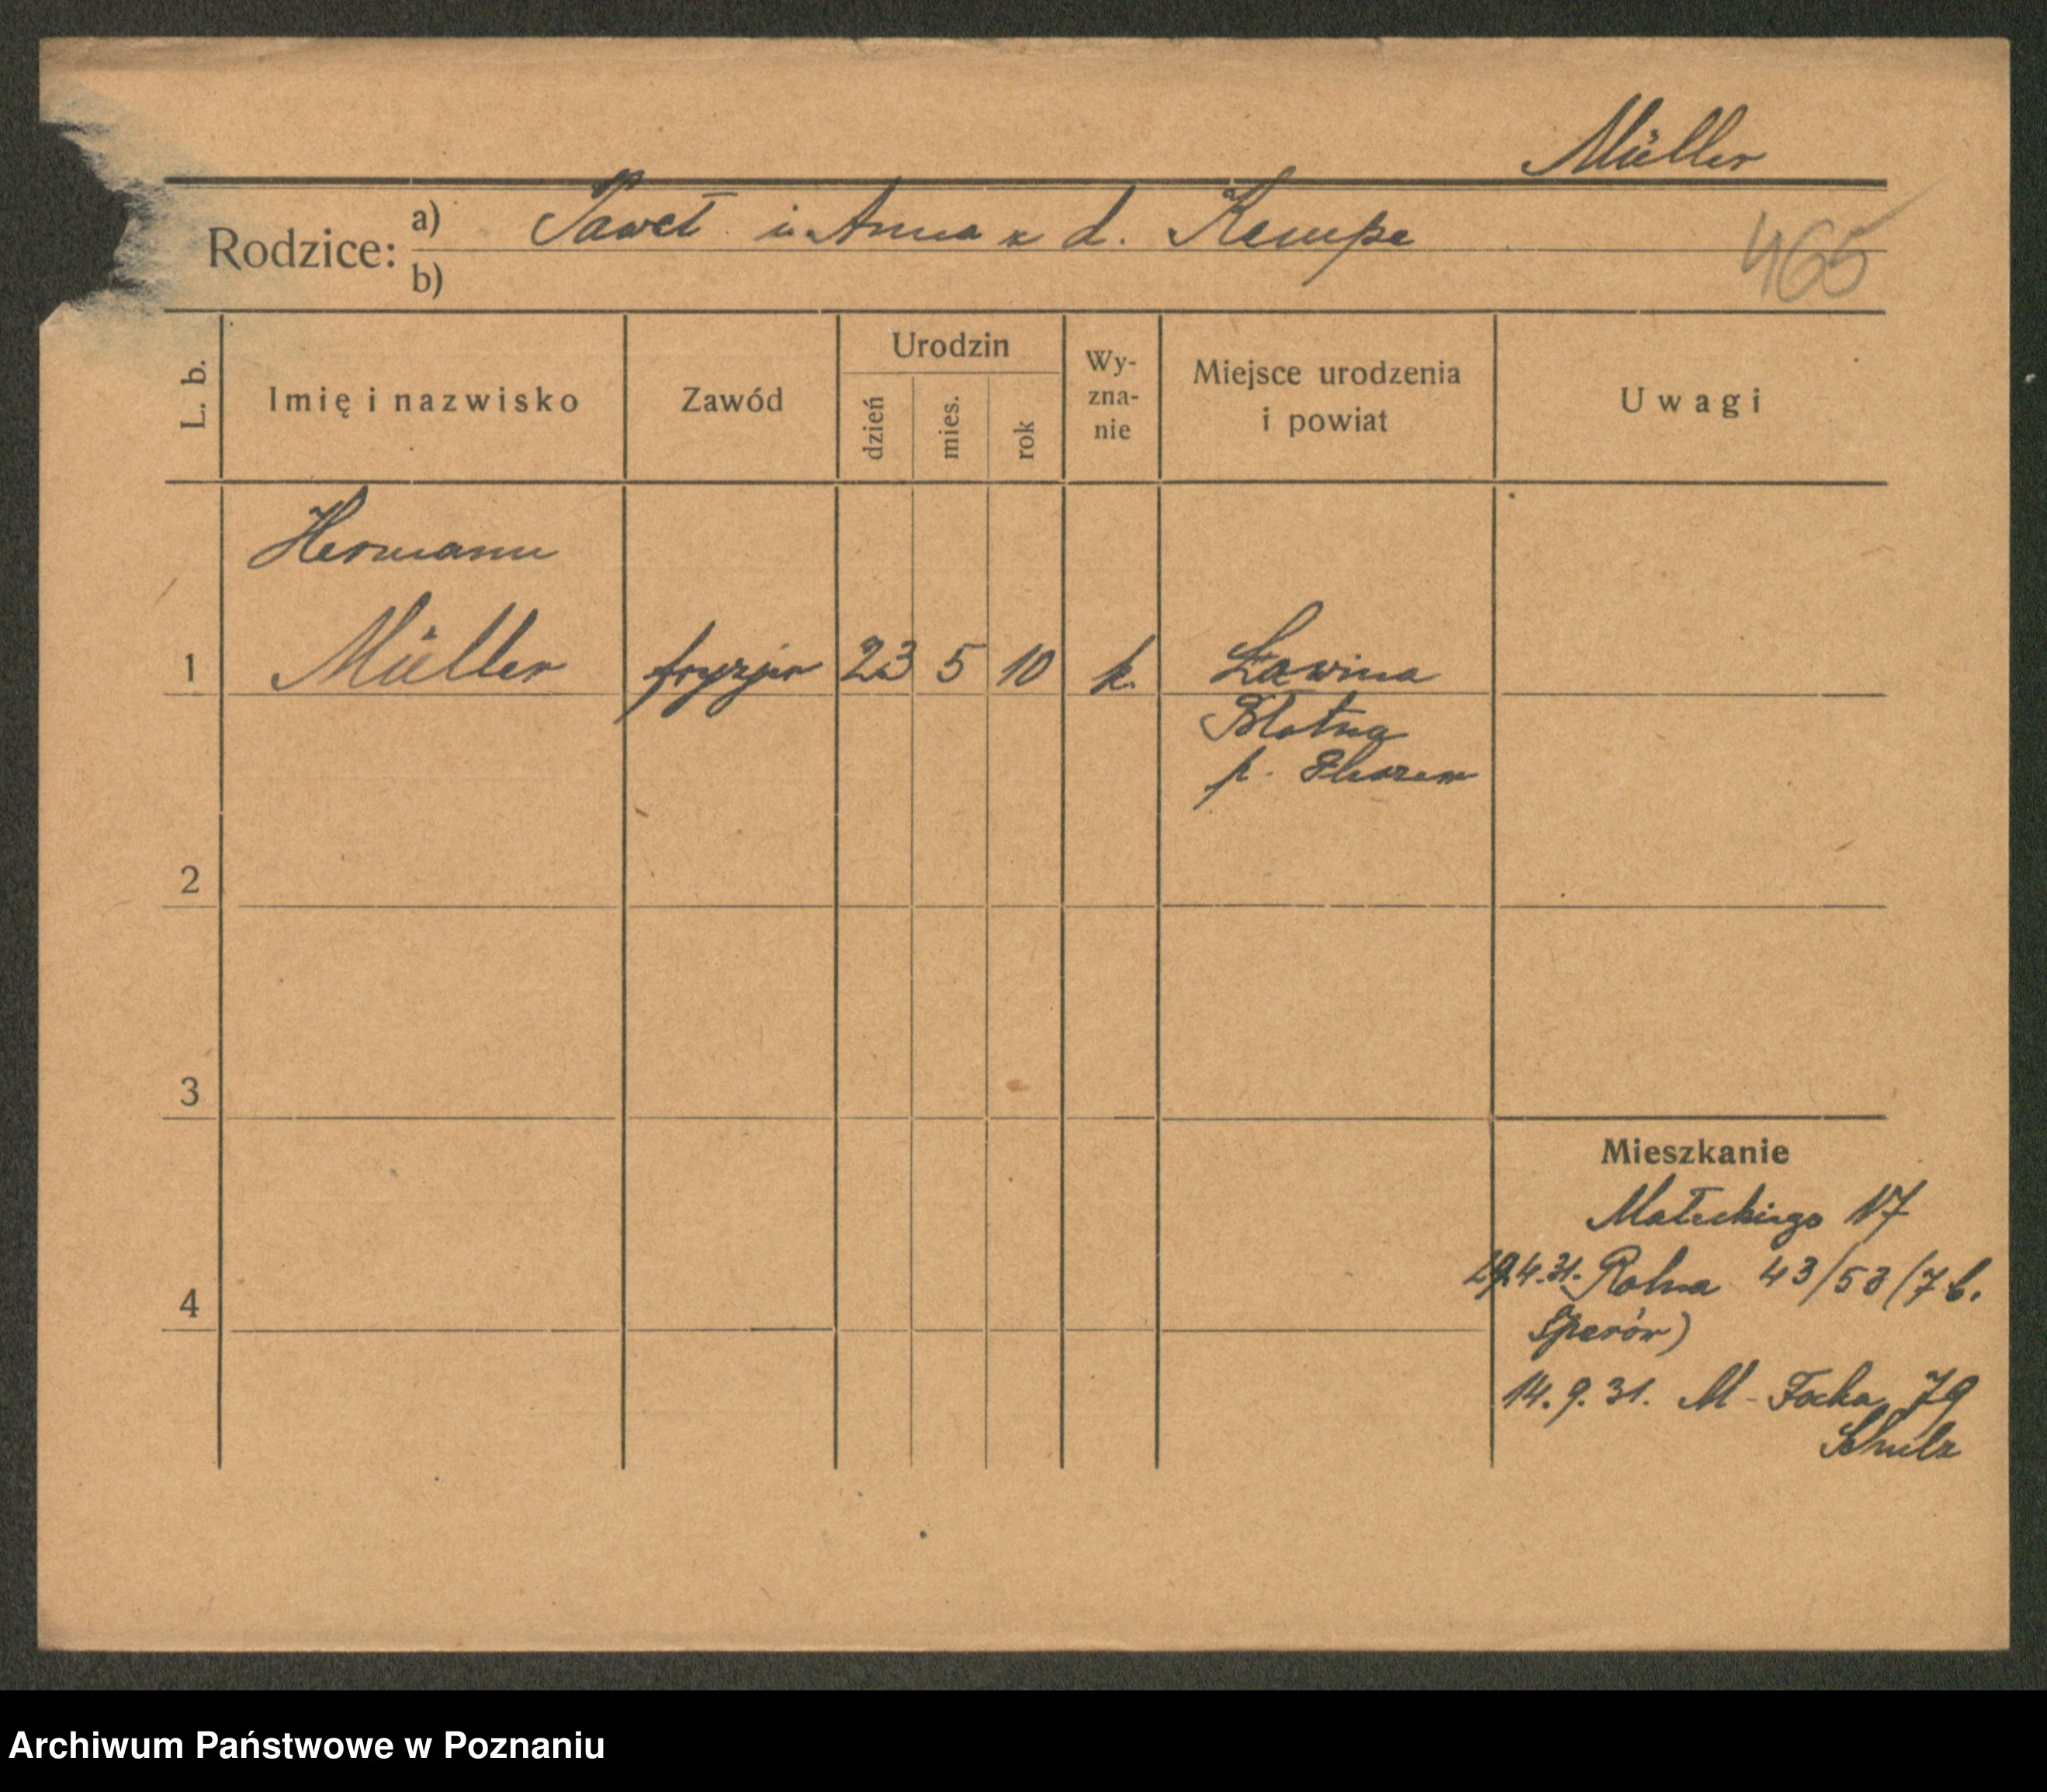 Müller
Rodzice: a) Paweł i Anna z d. Kempe
465
b)
L. b.
Imię i nazwisko
Zawód
Urodzin
dzień
mies.
rok
Wy-
zna-
nie
Miejsce urodzenia
i powiat
Uwagi
Hermann
1 Müller fryzjer 23 5 10 k. Ławina
Błotna
p.
2
3
Mieszkanie
Małeckiego 17
29.4.31. Rolna 43/53 (7 b.
4
Sperów)
14.9.31. M-Focha 79
Schulz
Archiwum Państwowe w Poznaniu